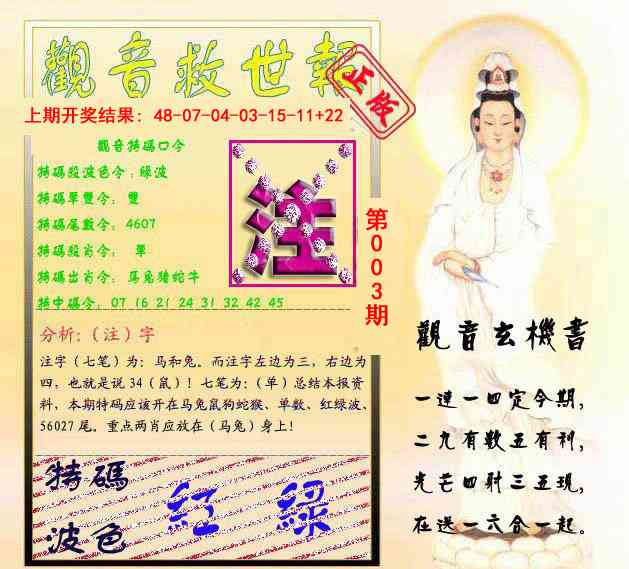 觀音救世報
正版
上期开奖结果：48-07-04-03-15-11+22
觀音特碼口令
特碼殺波色令：綠波
特碼單雙令： 雙
特碼尾數令： 4607
特碼殺肖令： 單
特碼出肖令： 馬兔猪蛇牛
特中碼令： 07 16 21 24 31 32 42 45
注
第003期
分析：（注）字
注字（七笔）为：马和兔。而注字左边为三，右边为
四，也就是说 34（鼠）！七笔为：（单）总结本报资
料，本期特码应该开在马兔鼠狗蛇猴、单数、红绿波、
56027 尾。重点两肖应放在（马兔）身上！
特碼
波色
紅 綠
觀音玄機書
一連一四定今期，
二九有數五有利，
光芒四射三五現，
在送一六合一起。